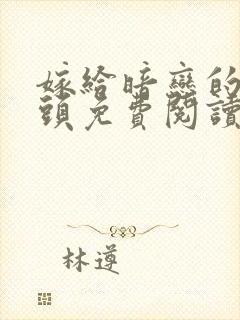 嫁給暗戀的
頭免費閱讀
林遵